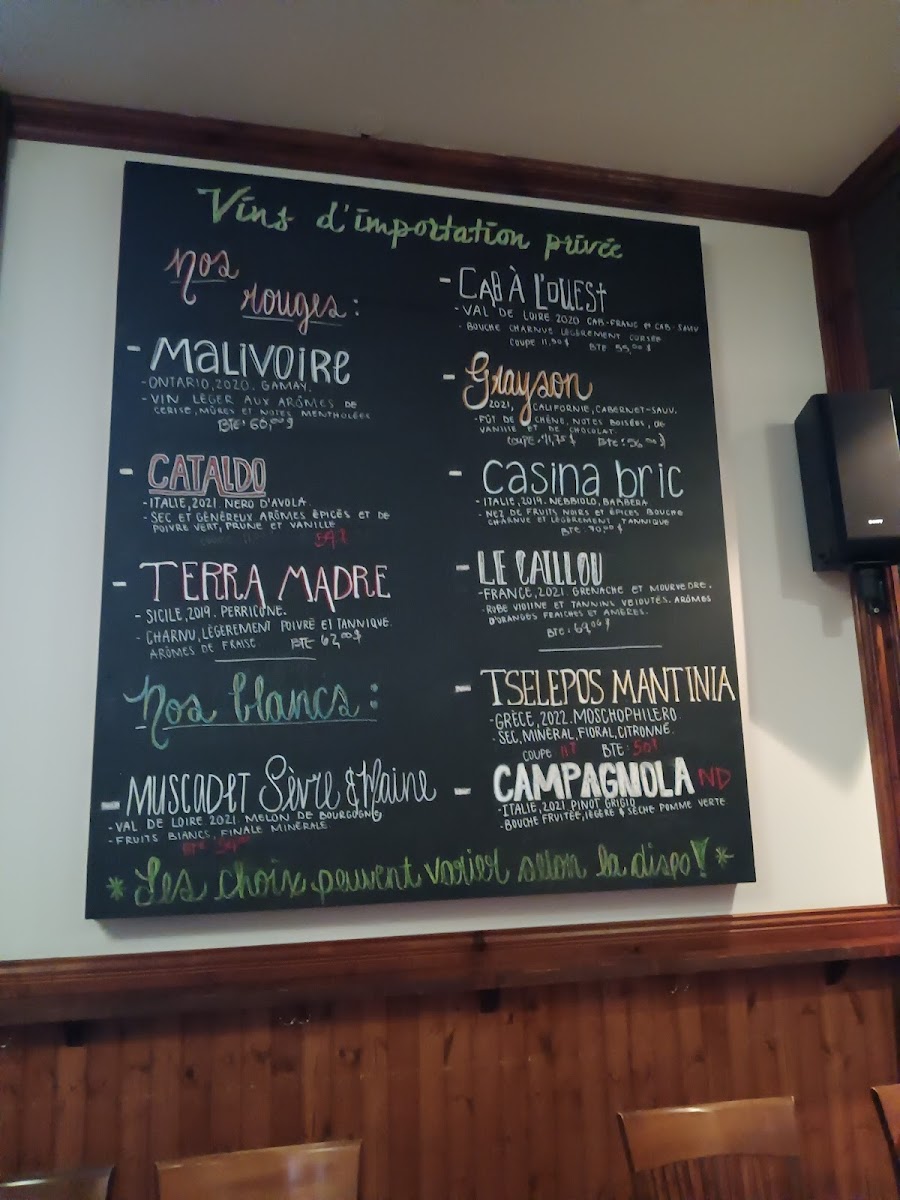 Vins d'importation privée
Nos
rouges :
- MALIVOIRE
- ONTARIO, 2020. GAMAY.
- VIN LÉGER AUX ARÔMES DE
CERISE, MÛRES ET NOTES MENTHOLÉES
BTE: 60,00$
- CATALDO
- ITALIE, 2021. NERO D'AVOLA
- SEC ET GÉNÉREUX ARÔMES ÉPICÉS ET DE
POIVRE VERT, PRUNE ET VANILLE
54$
- TERRA MADRE
- SICILE, 2019. PERRICONE.
- CHARNU, LÉGEREMENT POIVRÉ ET TANNIQUE.
ARÔMES DE FRAISE. BTE 62,00$
- CAB À L'OUEST
- VAL DE LOIRE 2020 CAB-FRANC ET CAB-SAUV
- BOUCHE CHARNUE LÉGÈREMENT CORSÉE
COUPE 11,50$ BTE 55,00$
- Grayson
2021, CALIFORNIE, CABERNET-SAUV.
- FÛT DE CHÊNE, NOTES BOISÉES, DE
VANILLE ET DE CHOCOLAT.
COUPE: 11,75$ BTE: 56,00$
- Casina bric
- ITALIE, 2019. NEBBIOLO, BARBERA
- NEZ DE FRUITS NOIRS ET ÉPICES BOUCHE
CHARNUE ET LÉGÈREMENT TANNIQUE
BTE: 70,00$
- LE CAILLOU
- FRANCE, 2021. GRENACHE ET MOURVEDRE.
- ROBE VIOLINE ET TANNINS VELOUTÉS. ARÔMES
D'ORANGES FRAICHES ET AMÈRES.
BTE: 69,00$
Nos blancs :
- MUSCADET Sèvre & Maine
- VAL DE LOIRE 2021. MELON DE BOURGOGNE
- FRUITS BLANCS, FINALE MINÉRALE
BTE
- TSELEPOS MANTINIA
- GRÈCE, 2022. MOSCHOPHILERO
- SEC, MINÉRAL, FLORAL, CITRONNÉ.
COUPE 11$ BTE: 50$
- CAMPAGNOLA ND
- ITALIE, 2021 PINOT GRIGIO
- BOUCHE FRUITÉE, LÉGÈRE & SÈCHE POMME VERTE
* Les choix peuvent varier selon la dispo! *
SONY